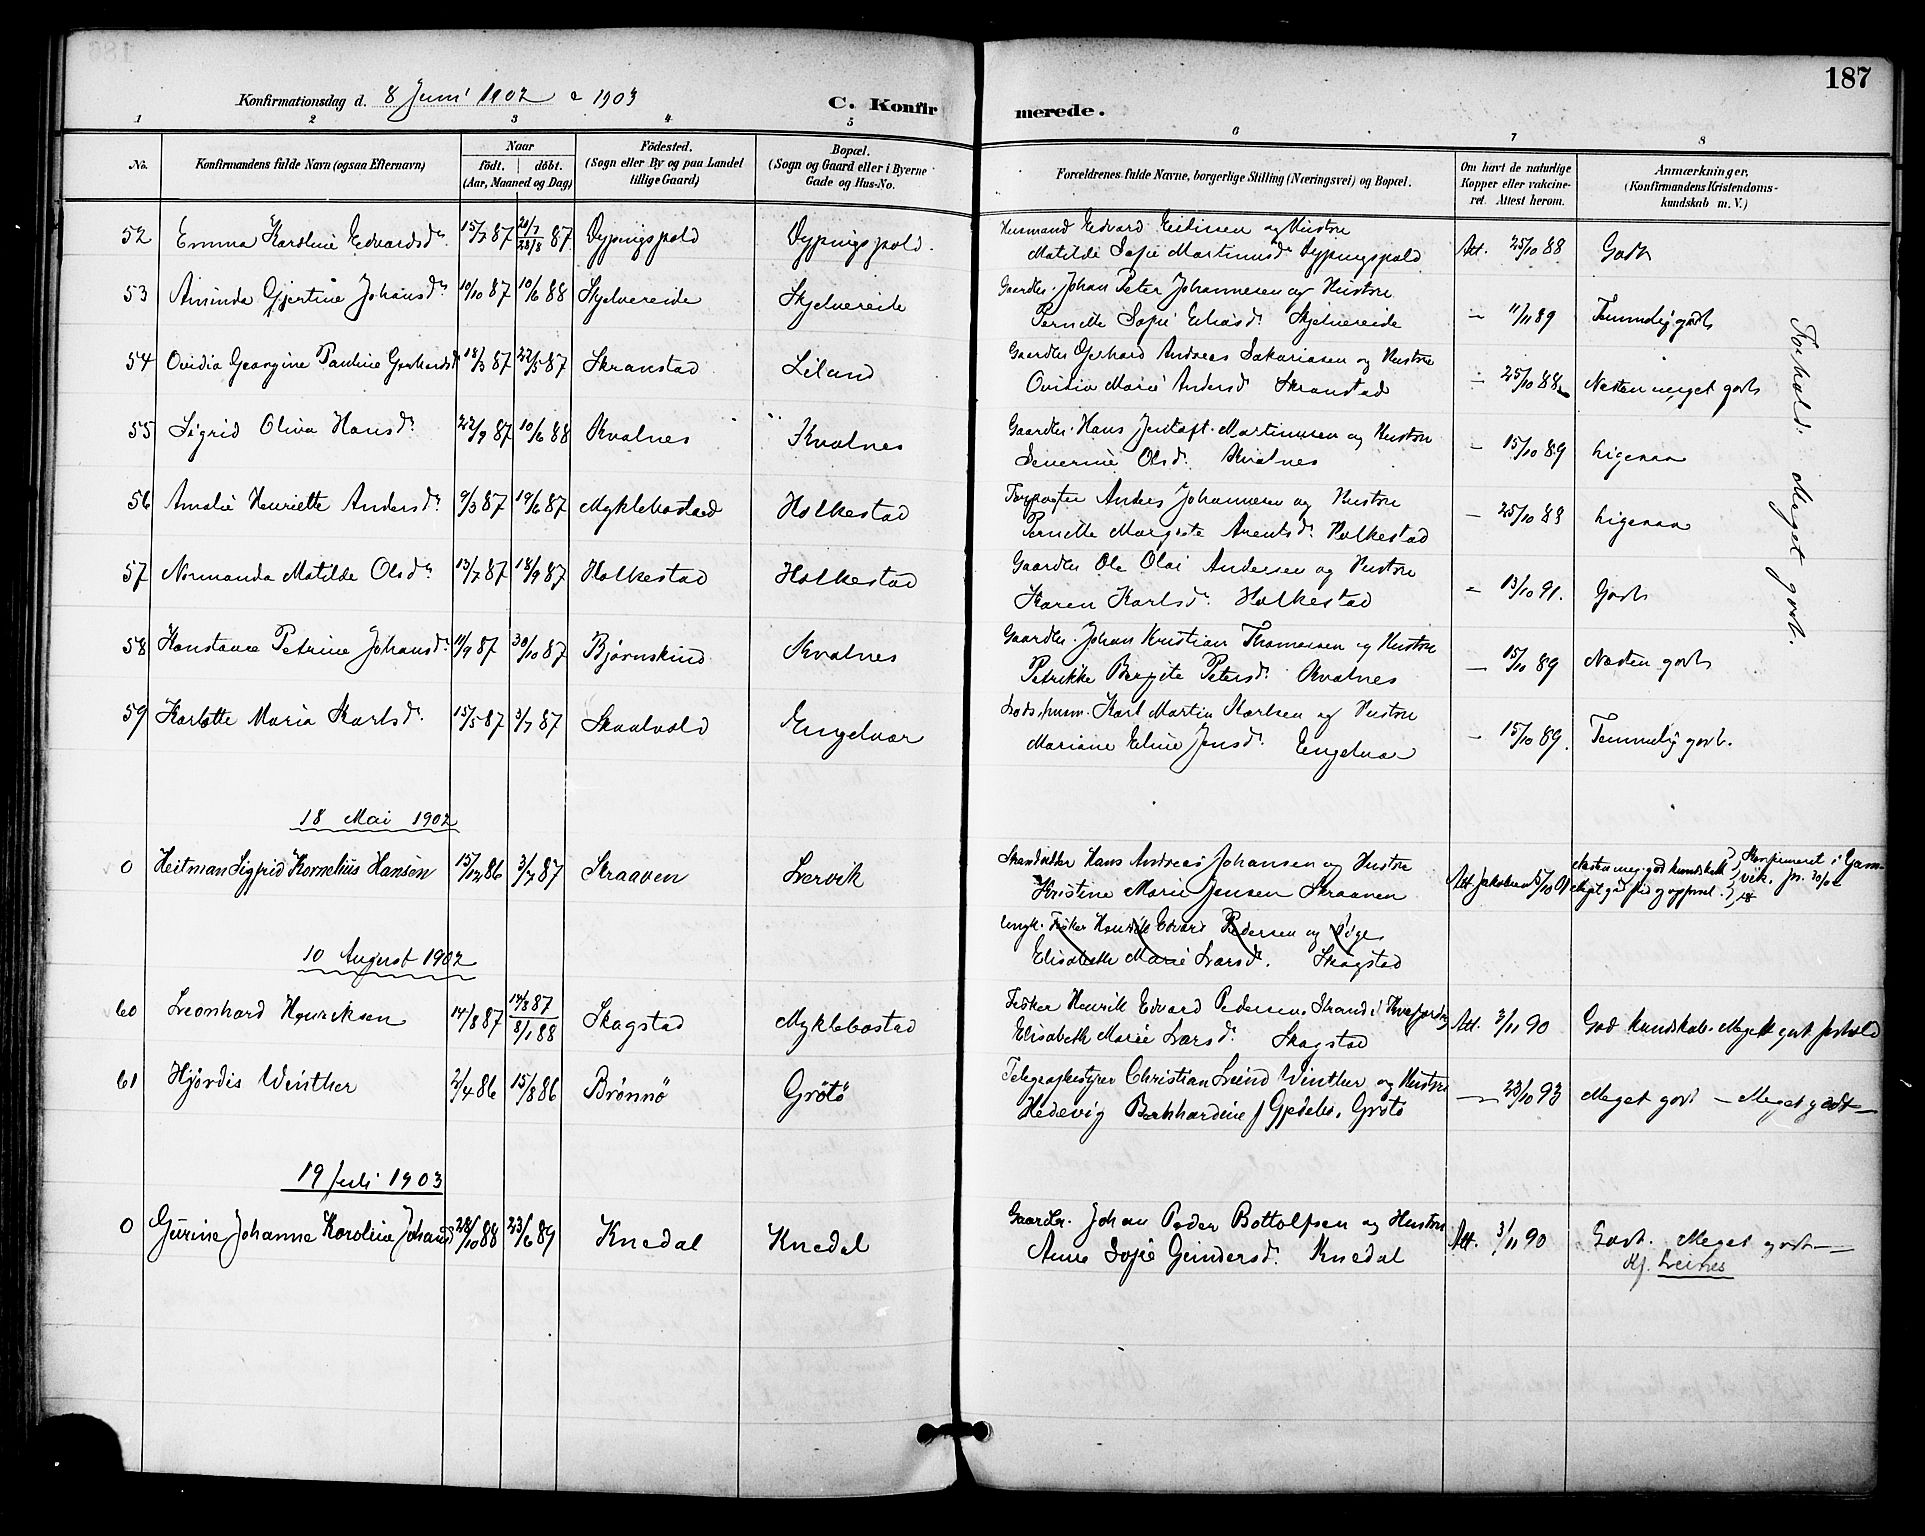 187
Konfirmationsdag d. 8 Juni 1902 & 1903
C. Konfir merede.
1 2 3 4 5 6 7 8
No. Konfirmandens fulde Navn (ogsaa Efternavn) Naar født. døbt. (Aar, Maaned og Dag) Fødested. (Sogn eller By og paa Landet tillige Gaard) Bopæl. (Sogn og Gaard eller i Byerne Gade og Hus-No. Forældrenes fulde Navne, borgerlige Stilling (Næringsvei) og Bopæl. Om havt de naturlige Kopper eller vakcineret. Attest herom. Anmærkninger. (Konfirmandens Kristendomskundskab m. V.)
52 Emma Karoline Edvardsdr. 15/7 87 20/7 28/8 87 Dypingspold Dypingspold. Husmand Edvard Eilissen og Hustru
Matilde Sofie Martinusdr Dypingspold Att. 25/10 88 Godt
53 Aminda Gjertine Johansdr 10/10 87 10/6 88 Skjelvereide Skjelvereide Gaardbr. Johan Peter Johannesen og Hustru
Pernelle Sofie Eliasdr. Skjelvereide - 11/11 89 Temmelig godt
54 Ovidia Georgine Pauline Gerhardsd 18/3 87 22/5 87 Skranstad Leland Gaardbr Gerhard Andreas Sakariasen og Hustru
Ovidia Marie Andersd. Skranstad - 25/10 88 Næsten meget godt
55 Sigrid Oliva Hansdr. 22/9 87 10/6 88 Kvalnes Kvalnes Gaardbr. Hans Jentoft Martinussen og Hustru
Severine Olsdr. Kvalnes - 15/10 89 Ligesaa
56 Amalie Henriette Andersdr. 9/3 87 19/6 87 Myklebostad Holkestad Anders Johannesen og Hustru
Pernelle Margrete Arentsdr. Holkestad - 25/10 88 Ligesaa
57 Normanda Matilde Olsdr. 13/7 87 18/9 87 Holkestad Holkestad Gaardbr Ole Olai Andersen og Hustru
Karen Karlsdr. Holkestad - 13/10 91. Godt
58 Konstance Petrine Johansdr. 11/9 87 30/10 87 Bjørnskind Kvalnes Gaardbr. Johan Kristian Thomassen og Hustru
Petrikke Bergite Petersdr. Kvalnes - 15/10 89 Næsten godt
59 Karlotte Maria Karlsdr. 15/5 87 3/7 87 Skaalvold Engelvær Karl Martin Karlsen og Hustru
Mariane Eline Jensdr. Engelvær - 15/10 89. Temmelig godt.
Forhold. Meget godt.
18 Mai 1902
0 Heitman Sigfrid Kornelius Hansen 15/12 86 3/7 87 Skraaven Lervik Strandsidder Hans Andreas Johansen og Hustru
Kristine Marie Jensen Skraaven Att Næsten meg. god kundskab
Meget god flid og opførsel. Konfirmeret i Gamvik.
Ungk. Fisker Henrik Edvard Pedersen og Pige
Elisabeth Marie Larsdr. Skagstad
10 August 1902
60 Leonhard Henriksen 14/8 87 14/8 87 8/1 88 Skagstad Myklebostad Fisker Henrik Edvard Pedersen, Strand i Kvæfjord og
Elisabeth Marie Larsdr. Skagstad Att. 3/11 90 God kundskab. Meget godt forhold
61 Hjørdis Winther 2/4 86 15/8 86 Brønnø Grøtø Telegrafbestyrer Christian Lund Winther og Hustru
Hedevig Bernhardine f Gjedebo, Grøtø - 23/10 93 Meget godt - Meget godt
19 Juli 1903
0 Gurine Johanne Karoline Johansd 28/10 88 23/6 89 Knedal Knedal Gaardbr. Johan Peder Bottolfsen og Hustru
Anne Sofie Gundersd. Knedal Att. 3/11 90 Godt. Meget godt
Kf. Leines